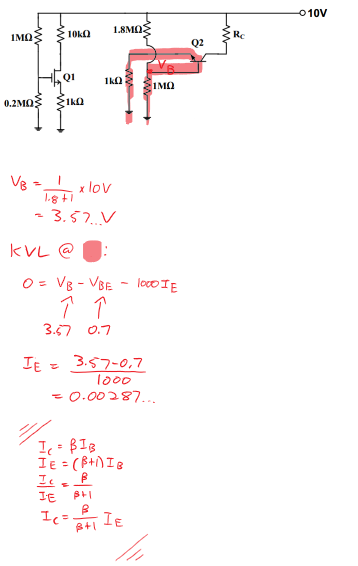 10V
1MΩ 10kΩ 1.8MΩ Q2 RC
VB
Q1 1kΩ 1MΩ
0.2MΩ 1kΩ
VB = 1/(1.8+1) × 10V
= 3.57...V
KVL @ :
0 = VB - VBE - 1000IE
↑ ↑
3.57 0.7
IE = (3.57-0.7)/1000
= 0.00287...
IC = βIB
IE = (β+1)IB
IC/IE = β/(β+1)
IC = β/(β+1) IE